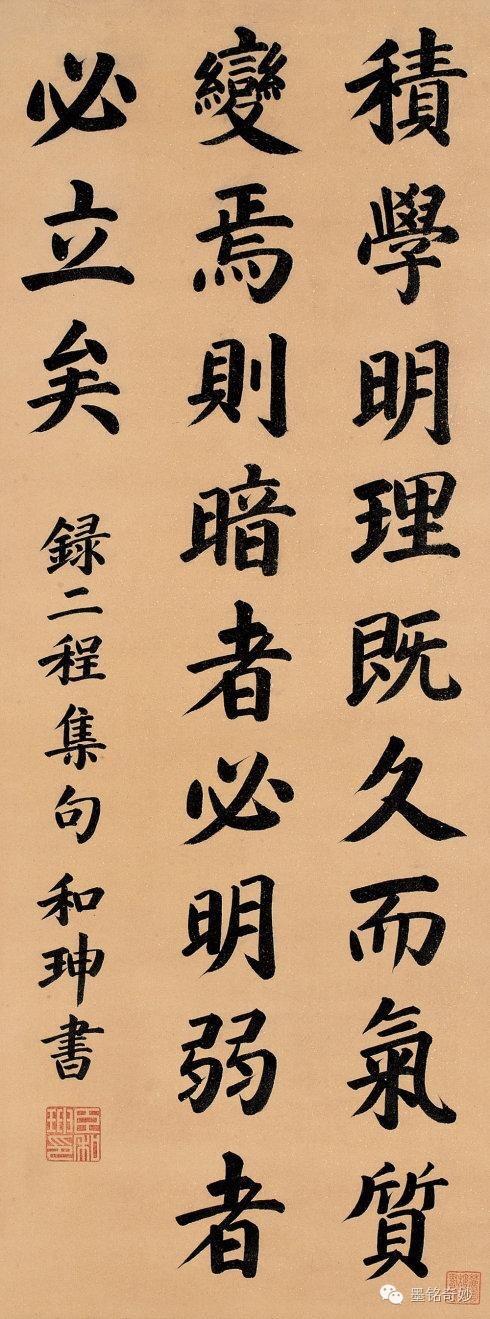 積學明理既久而氣質
變焉則暗者必明弱者
必立矣
録二程集句 和珅書
墨铭奇妙